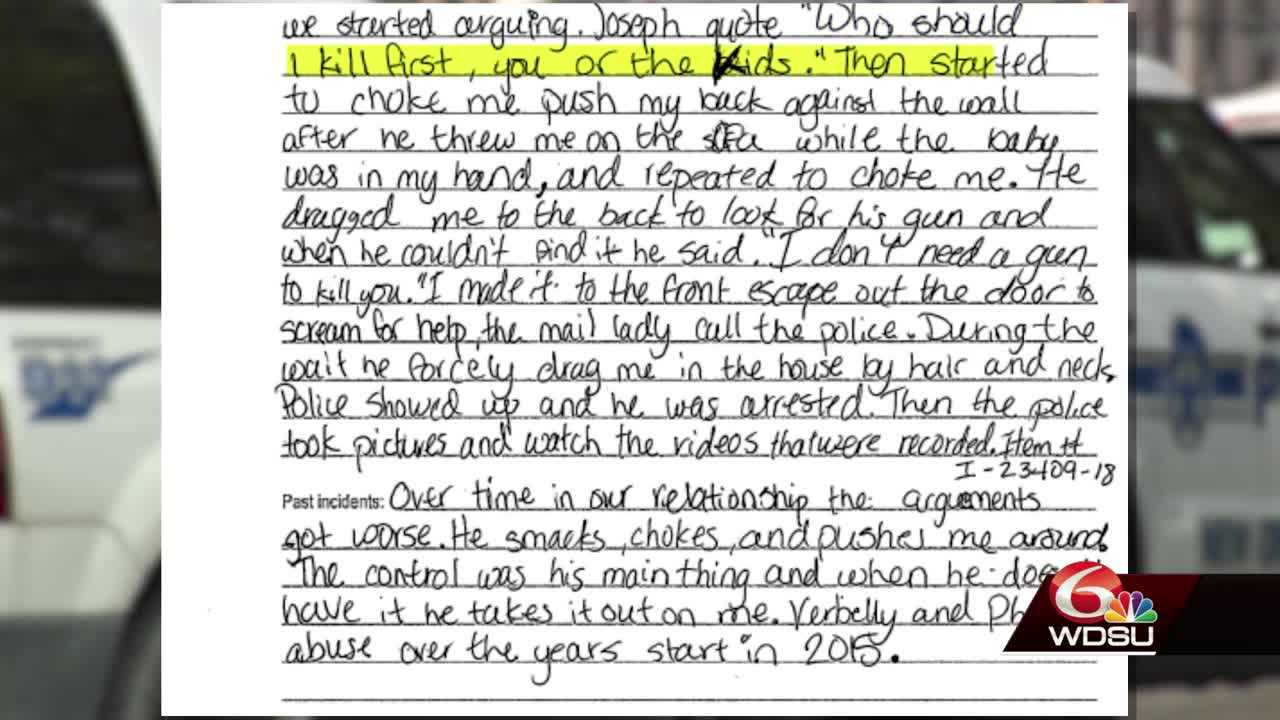 we started arguing. Joseph quote "Who should
I kill first, you or the kids." Then started
to choke me push my back against the wall
after he threw me on the sofa while the baby
was in my hand, and repeated to choke me. He
dragged me to the back to look for his gun and
when he couldn't find it he said.. "I don't need a gun
to kill you." I made it to the front escape out the door to
scream for help, the mail lady call the police. During the
wait he forcely drag me in the house by hair and neck.
Police showed up and he was arrested. Then the police
took pictures and watch the videos that were recorded. Item #
I-23409-18
Past incidents: Over time in our relationship the arguements
got worse. He smacks, chokes, and pushes me around.
The control was his main thing and when he
have it he takes it out on me. Verbelly and
abuse over the years start in 2015.
6
WDSU